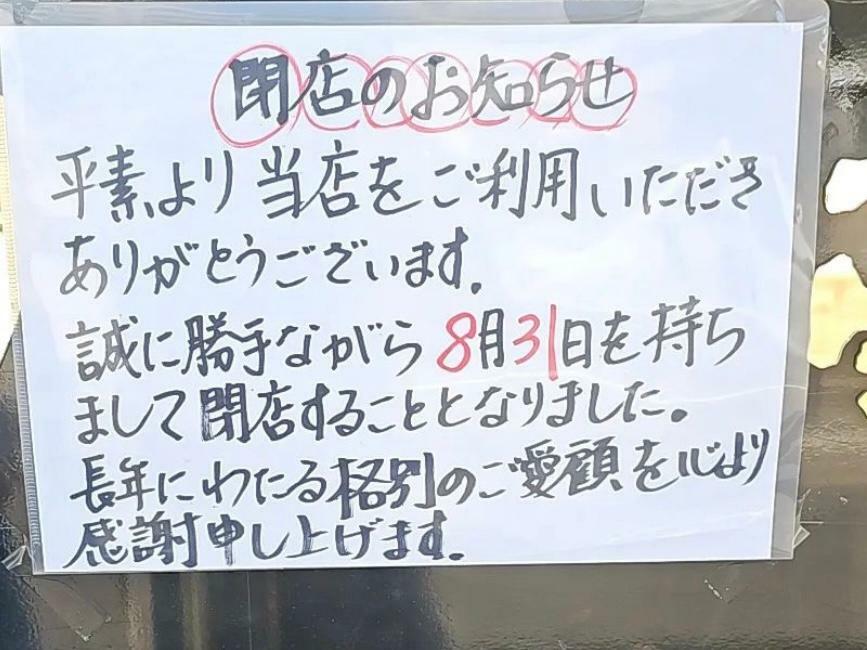 閉店のお知らせ
平素より当店をご利用いたださ
ありがとうございます。
誠に勝手ながら8月31日を持ち
まして閉店することとなりました。
長年にわたる格別のご愛顧を心より
感謝申し上げます。